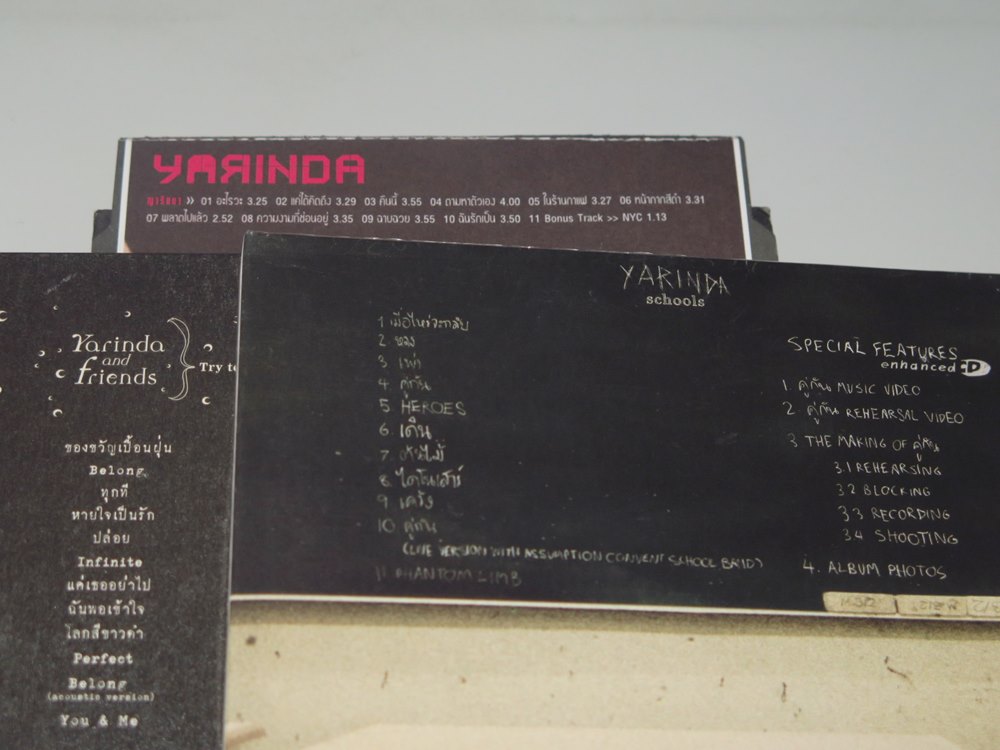 YARINDA
ญารินดา >> 01 อะไรวะ 3.25 02 แค่ได้คิดถึง 3.29 03 คืนนี้ 3.55 04 ตามหาตัวเอง 4.00 05 ในร้านกาแฟ 3.27 06 หน้ากากสีดำ 3.31
07 พลาดไปแล้ว 2.52 08 ความงามที่ซ่อนอยู่ 3.35 09 ฉาบฉวย 3.55 10 ฉันรักเป็น 3.50 11 Bonus Track >> NYC 1.13
Yarinda
and
friends
Try to
ของขวัญเปื้อนฝุ่น
Belong
ทุกที
หายใจเป็นรัก
ปล่อย
Infinite
แค่เธออย่าไป
ฉันพอเข้าใจ
โลกสีขาวดำ
Perfect
Belong
(acoustic version)
You & Me
YARINDA
schools
1 เมื่อไหร่จะกลับ
2. หลง
3. เหงา
4. คู่กัน
5. HEROES
6. เต็น
7. ต้นไม้
8. ไดโนเสาร์
9. เคว้ง
10. คู่กัน
(LIVE VERSION WITH ASSUMPTION CONVENT SCHOOL BAND)
11. PHANTOM LIMB
SPECIAL FEATURES
enhanced D
1. คู่กัน MUSIC VIDEO
2. คู่กัน REHEARSAL VIDEO
3. THE MAKING OF คู่กัน
3.1 REHEARSING
3.2 BLOCKING
3.3 RECORDING
3.4 SHOOTING
4. ALBUM PHOTOS